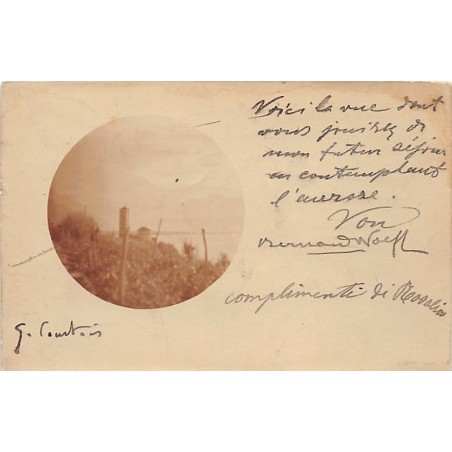 Voici la vue dont
vous jouirez de
mon futur séjour
en contemplant
l'averse.
Von
Bernard Wolff
complimenti di Rosalia
G. Courtois